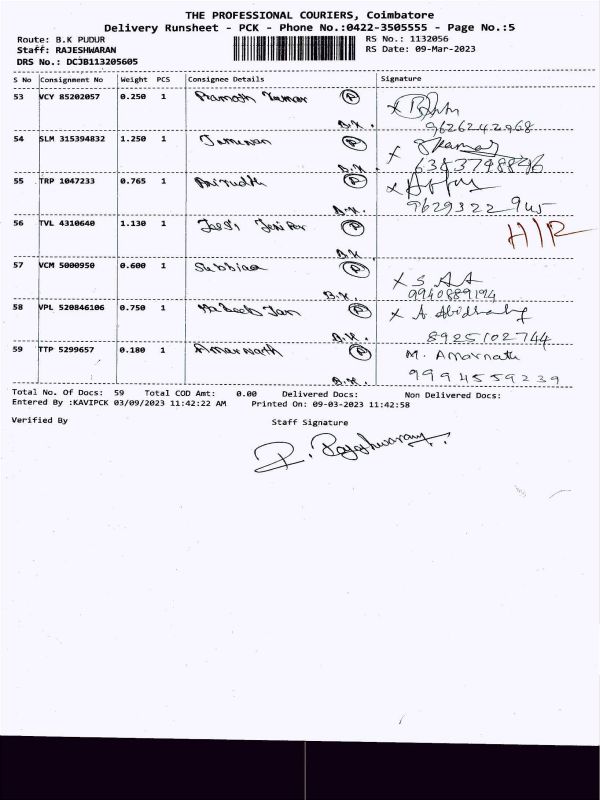 THE PROFESSIONAL COURIERS, Coimbatore
Delivery Runsheet - PCK - Phone No.:0422-3505555 - Page No.:5
Route: B.K PUDUR RS No.: 1132056
Staff: RAJESHWARAN RS Date: 09-Mar-2023
DRS No.: DCJB113205605
S No Consignment No Weight PCS Consignee Details Signature
53 VCY 85202057 0.250 1 Pramoth Kumar P
B.K. 9626242968
54 SLM 315394832 1.250 1 P
B.K. 6383798896
55 TRP 1047233 0.765 1 Anirudth P
B.K. 9629322945
56 TVL 4310640 1.130 1 P H/R
B.K
57 VCM 5000950 0.600 1 Subbiaa P
B.K. 9940889194
58 VPL 520846106 0.750 1 P
B.K. 8925102744
59 TTP 5299657 0.180 1 Amarnath P M. Amarnath
B.K. 9994559239
Total No. Of Docs: 59 Total COD Amt: 0.00 Delivered Docs: Non Delivered Docs:
Entered By :KAVIPCK 03/09/2023 11:42:22 AM Printed On: 09-03-2023 11:42:58
Verified By Staff Signature
R. Rajeshwaran